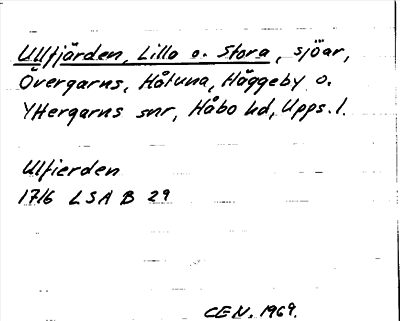 Ullfjärden, Lilla o. Stora, sjöar,
Övergarns, Håtuna, Häggeby o.
Yttergarns snr, Håbo hd, Upps. l.
Ulfierden
1716 LSA B 29
CEN. 1969.